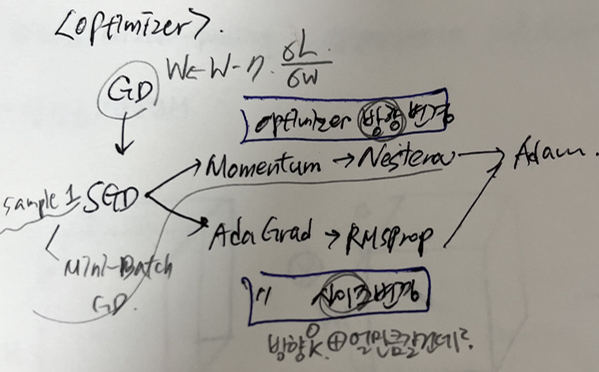 <optimizer>.
GD W←W-η.∂L/∂W
optimizer 방향 변경
Momentum → Nesterov → Adam.
sample 1 SGD
AdaGrad → RMSprop
Mini-Batch
GD.
〃 사이즈 변경
방향 OK. ⊕ 얼만큼 갈건데?